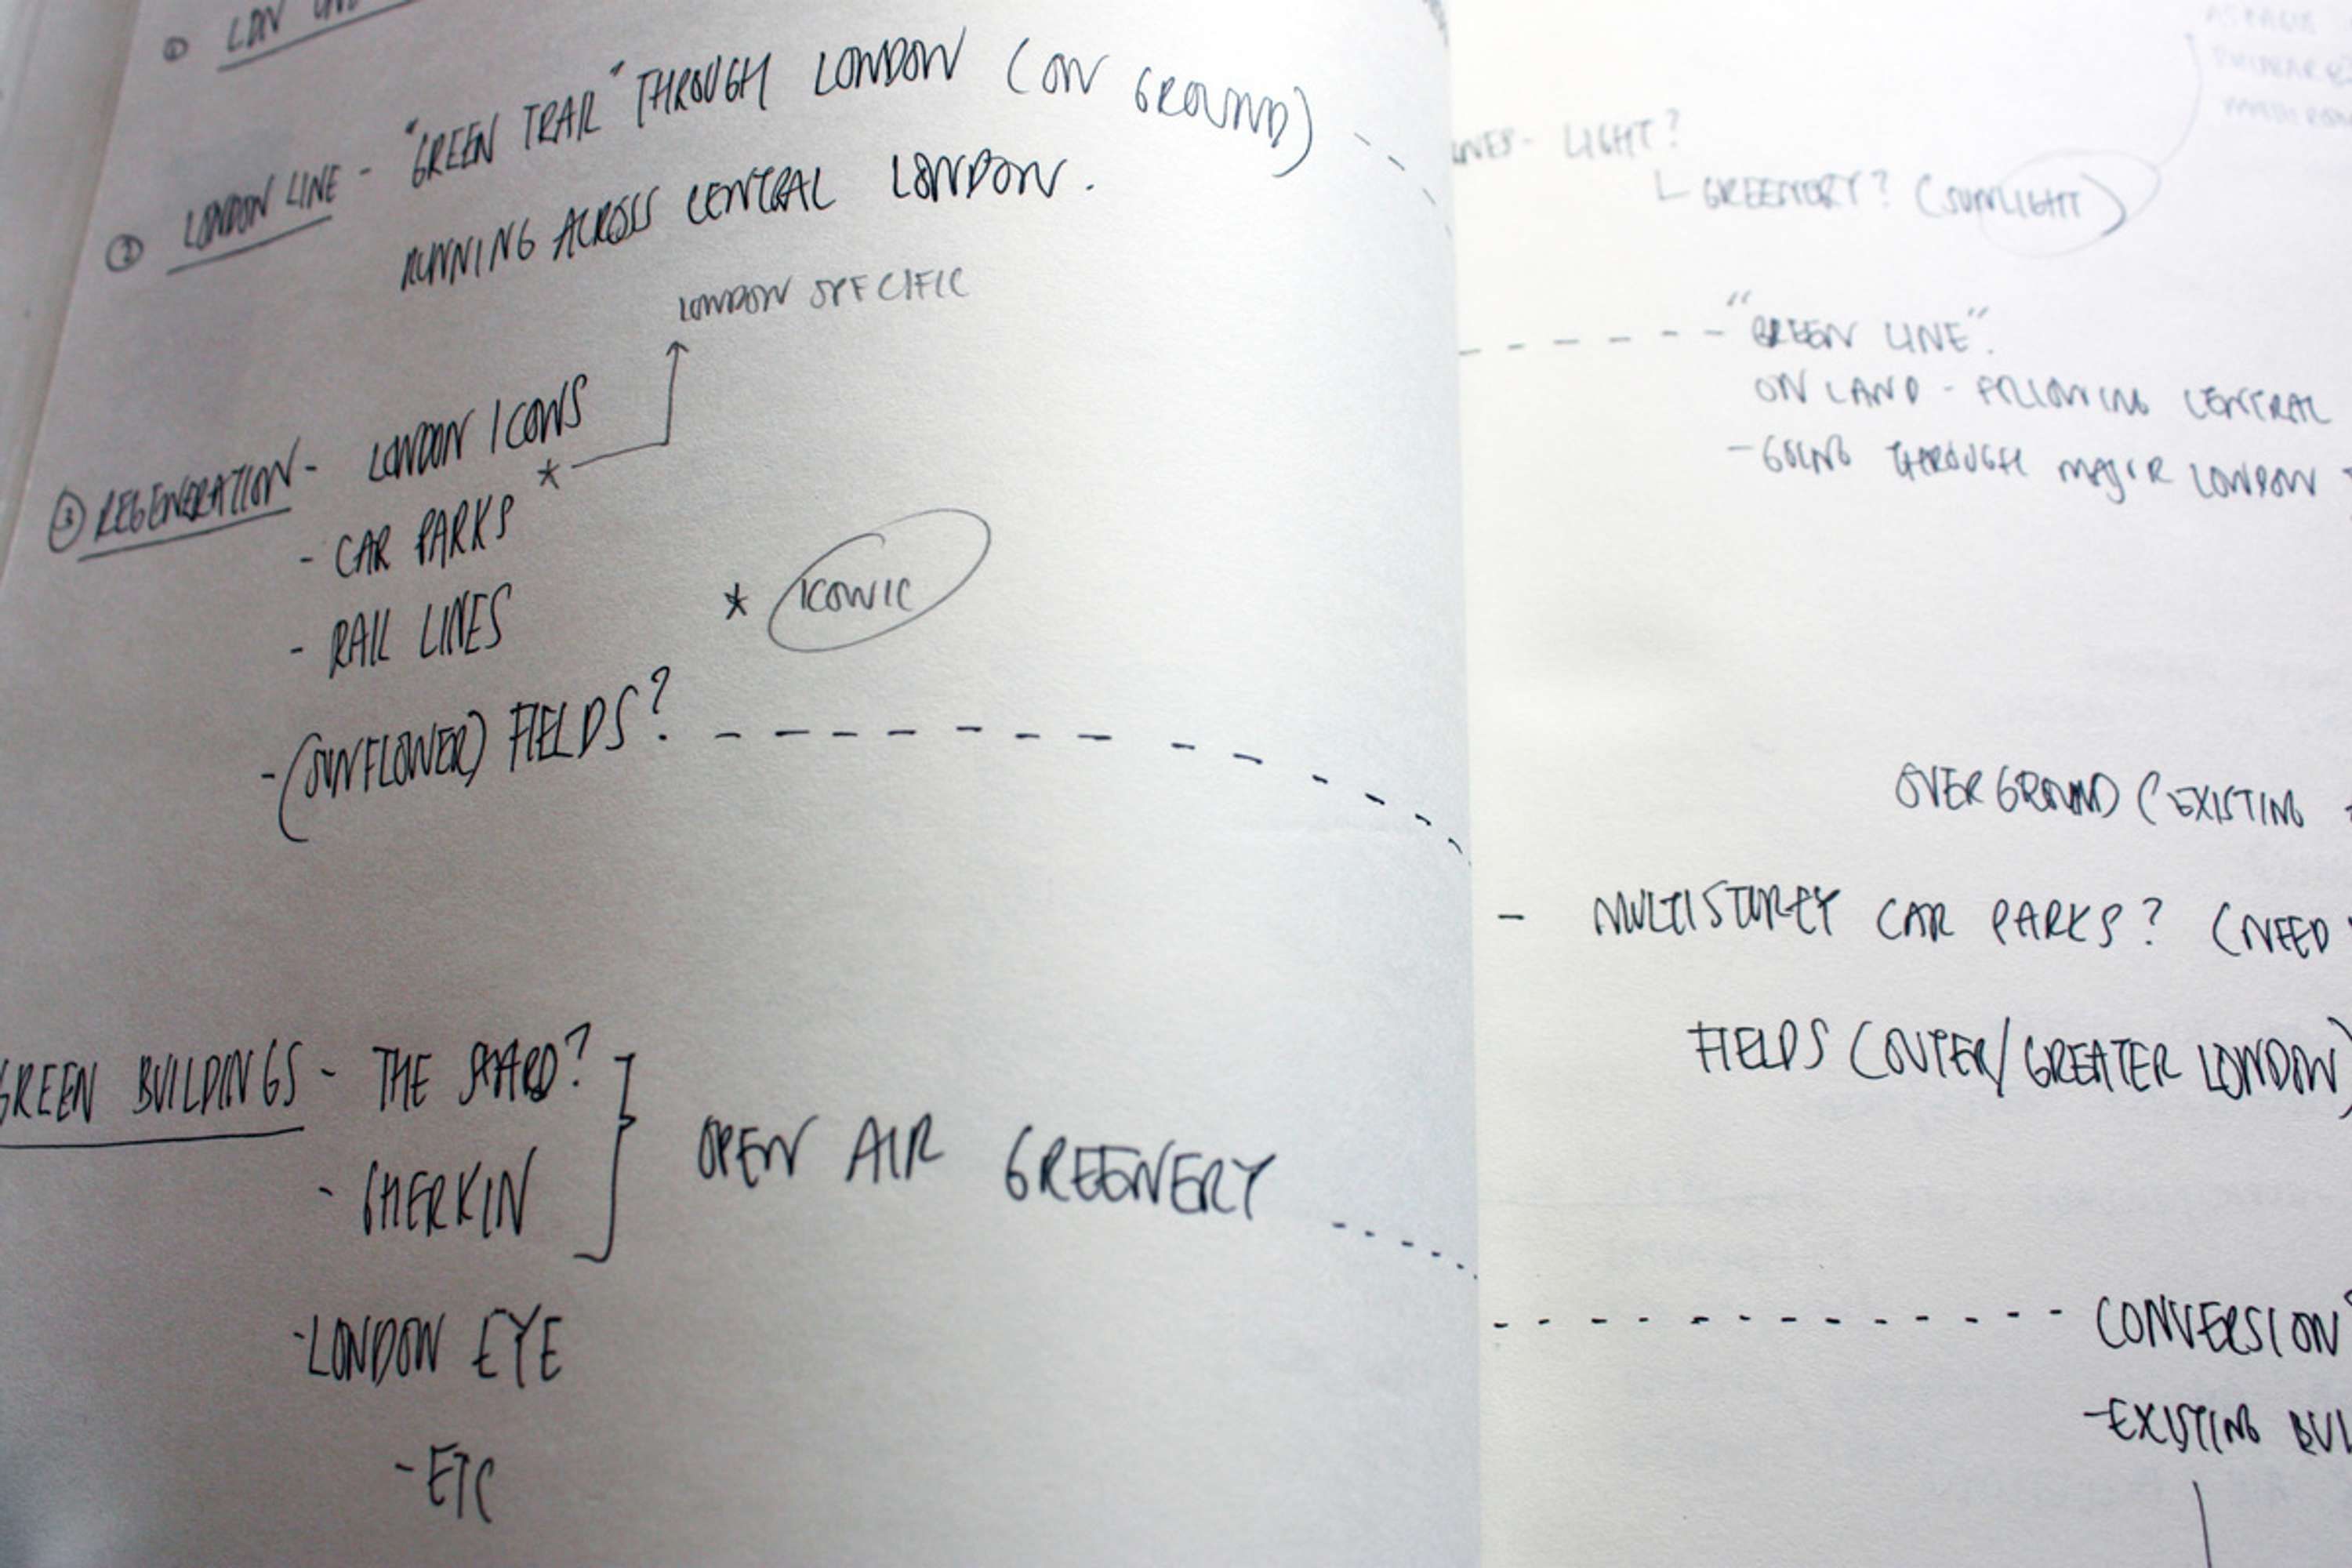 ① LDN
② LONDON LINE - "GREEN TRAIL" THROUGH LONDON (ON GROUND)
RUNNING ACROSS CENTRAL LONDON.
LONDON SPECIFIC
③ REGENERATION - LONDON ICONS
- CAR PARKS *
- RAIL LINES
* ICONIC
- (SUNFLOWER) FIELDS?
GREEN BUILDINGS - THE SHARD?
- GHERKIN
OPEN AIR GREENERY
- LONDON EYE
- ETC
- LIGHT?
GREENERY? (SUNLIGHT)
"GREEN LINE".
ON LAND - FOLLOWING CENTRAL
- GOING THROUGH MAJOR LONDON
OVERGROUND (EXISTING
- MULTISTOREY CAR PARKS? (NEED
FIELDS (OUTER/GREATER LONDON)
CONVERSION
- EXISTING